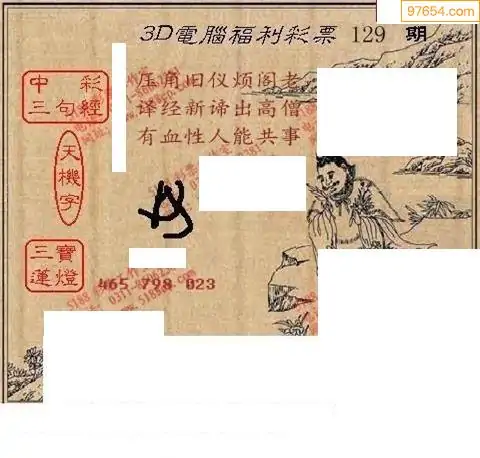 97654.com
3D電腦福利彩票 129 期
中彩
三句經
压角旧仪烦阁老
译经新谛出高僧
有血性人能共事
天機字
三寶
蓮燈
465 798 023